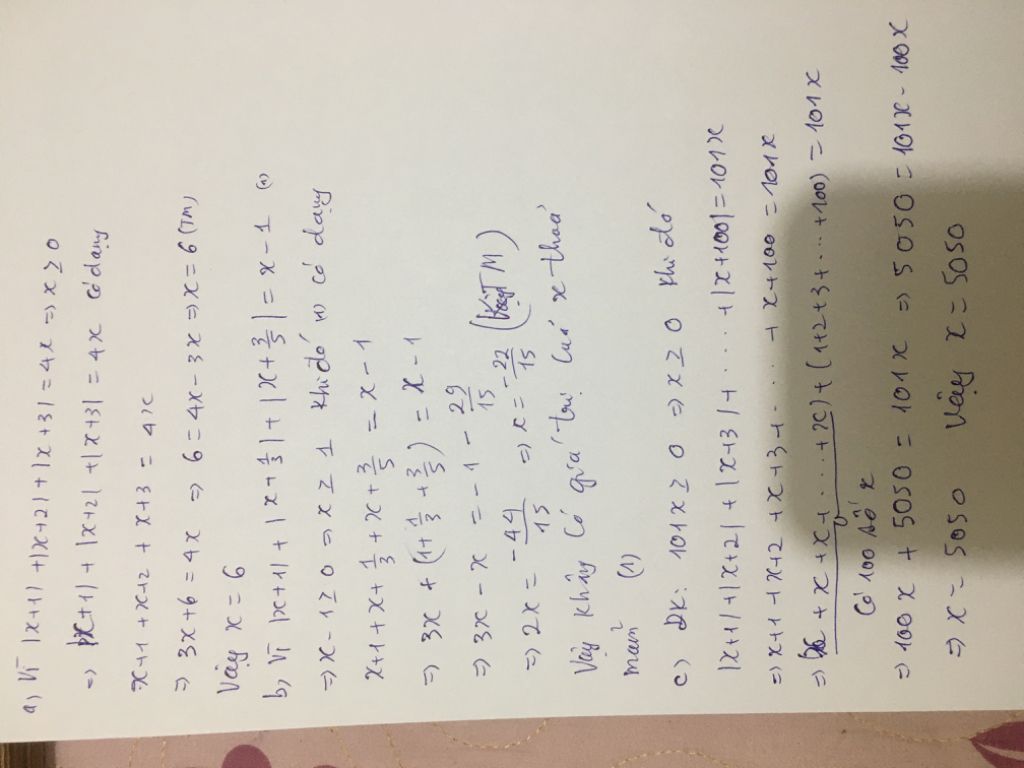 a) Vì |x+1| + |x+2| + |x+3| = 4x => x ≥ 0
=> |x+1| + |x+2| + |x+3| = 4x có dạng
x+1 + x+2 + x+3 = 4x
=> 3x+6 = 4x => 6 = 4x - 3x => x = 6 (TM)
Vậy x = 6
b) Vì |x+1| + |x+1/3| + |x+3/5| = x-1 (1)
=> x-1 ≥ 0 => x ≥ 1 khi đó (1) có dạng
x+1+x+1/3+x+3/5 = x-1
=> 3x + (1+1/3+3/5) = x-1
=> 3x - x = -1 - 29/15
=> 2x = -44/15 => x = -22/15 (KTM)
Vậy không có giá trị của x thoả
mãn (1)
c) ĐK: 101x ≥ 0 => x ≥ 0 khi đó
|x+1| + |x+2| + |x+3| + .... + |x+100| = 101x
=> x+1 + x+2 + x+3 + .... + x+100 = 101x
=> (x + x + .... + x) + (1+2+3+...+100) = 101x
có 100 số x
=> 100x + 5050 = 101x => 5050 = 101x - 100x
=> x = 5050 Vậy x = 5050